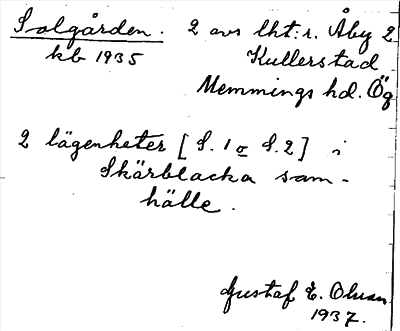 Solgården. 2 avs lht:r. Åby 2
kb 1935 Kullerstad
Memmings hd. Ög
2 lägenheter [S. 1 o S. 2] i
Skärblacka sam-
hälle.
Gustaf E. Olsson
1937.